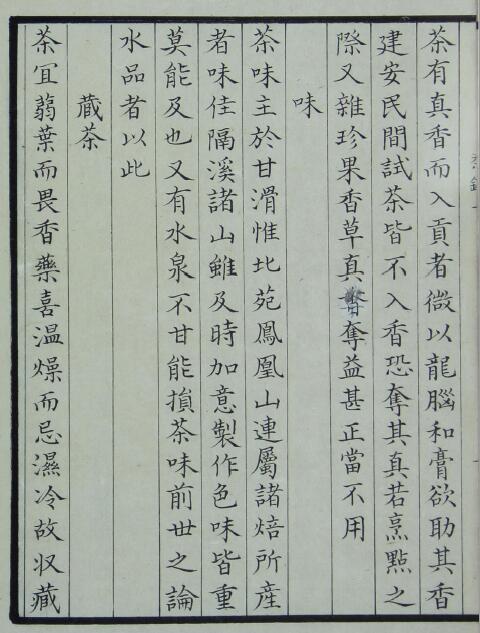 茶有真香而入貢者微以龍腦和膏欲助其香
建安民間試茶皆不入香恐奪其真若烹點之
際又雜珍果香草真奪益甚正當不用
味
茶味主於甘滑惟北苑鳳凰山連屬諸焙所産
者味佳隔溪諸山雖及時加意製作色味皆重
莫能及也又有水泉不甘能損茶味前世之論
水品者以此
藏茶
茶宜蒻葉而畏香藥喜溫燥而忌濕冷故収藏